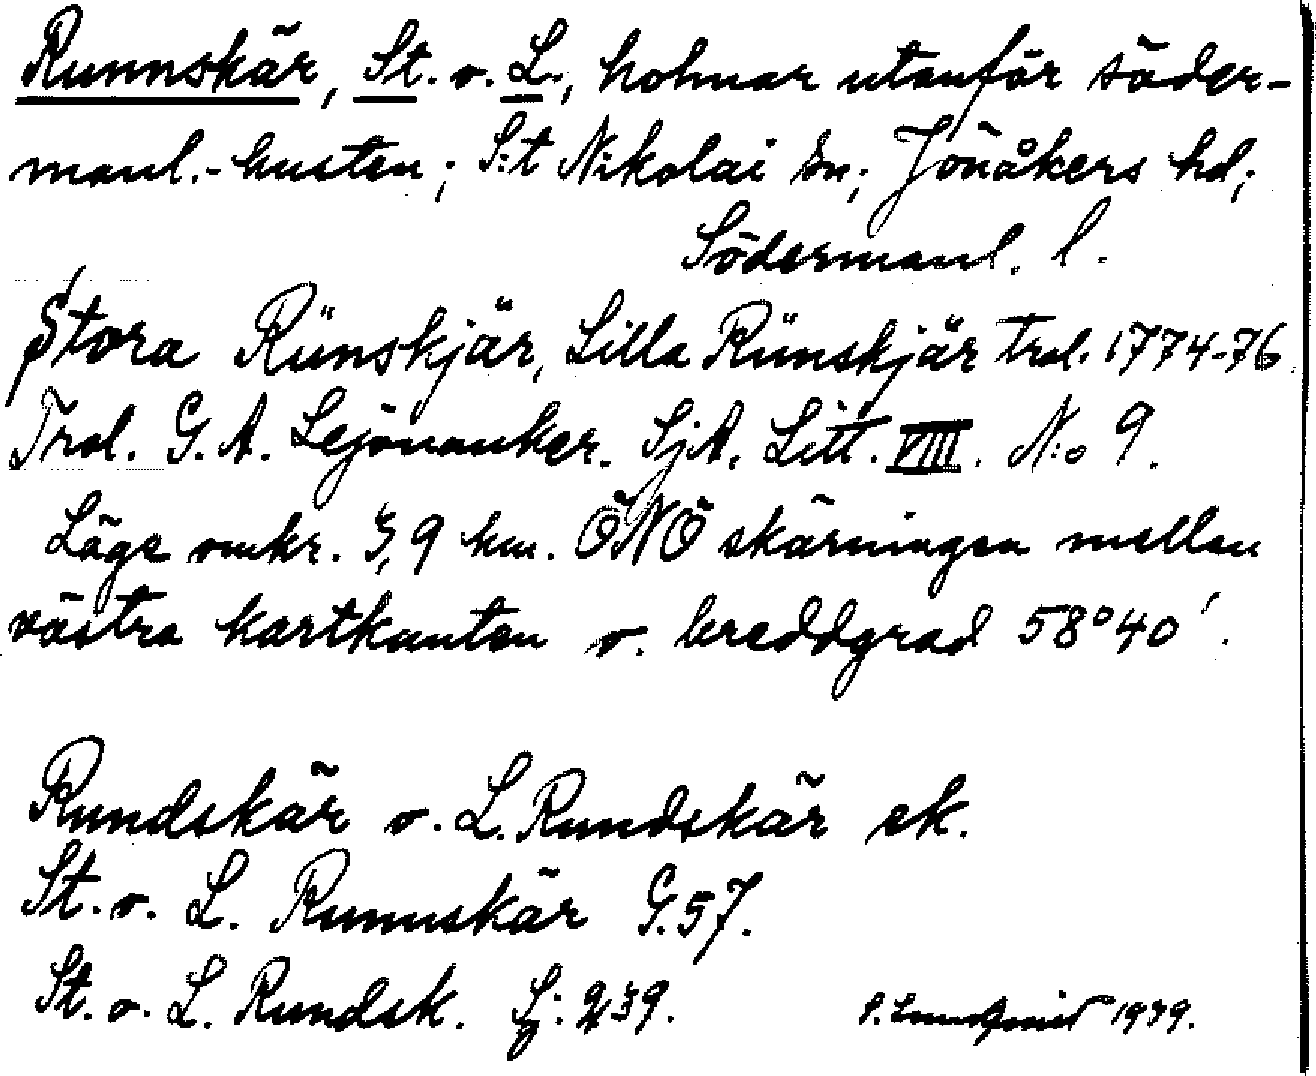 Runnskär, St. o. L., holmar utanför söder-
manl.-kusten; S:t Nikolai sn; Jönåkers hd;
Södermanl. l.
Stora Rünskjär, Lilla Rünskjär trol. 1774-76.
Trol. G. A. Lejonanker. SjA. Litt. VIII. N:o 9.
Läge omkr. 3,9 km. ÖNÖ skärningen mellan
västra kartkanten o. breddgrad 58°40'.
Rundskär o. L. Rundskär ek.
St. o. L. Runnskär G.57.
St. o. L. Rundsk. 239.
1939.